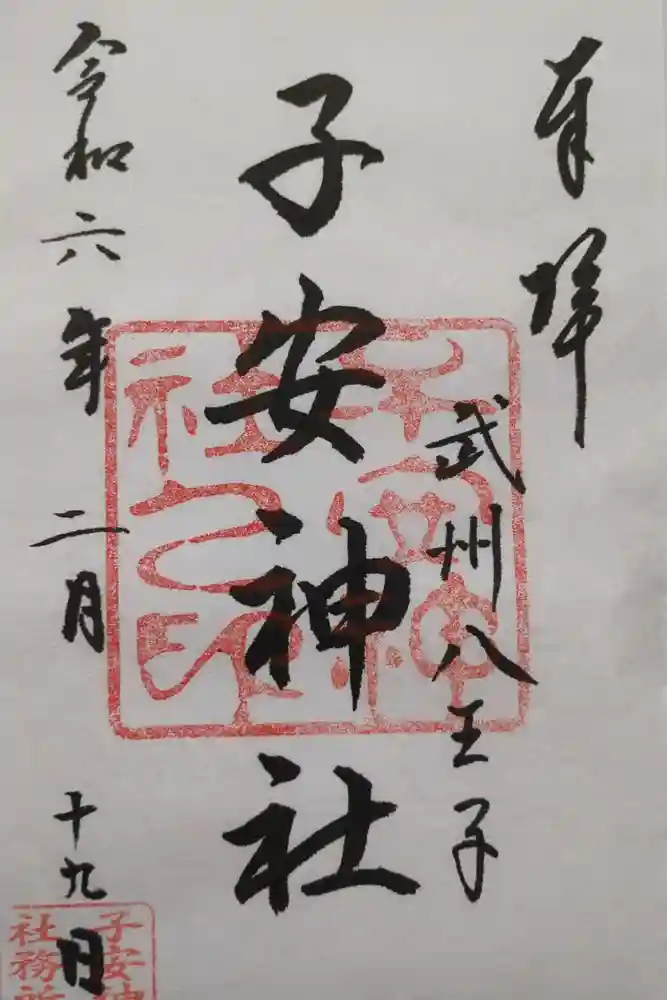 奉拝
武州八王子
子安神社
子安神社之印
令和六年 二月 十九日
子安神
社務所